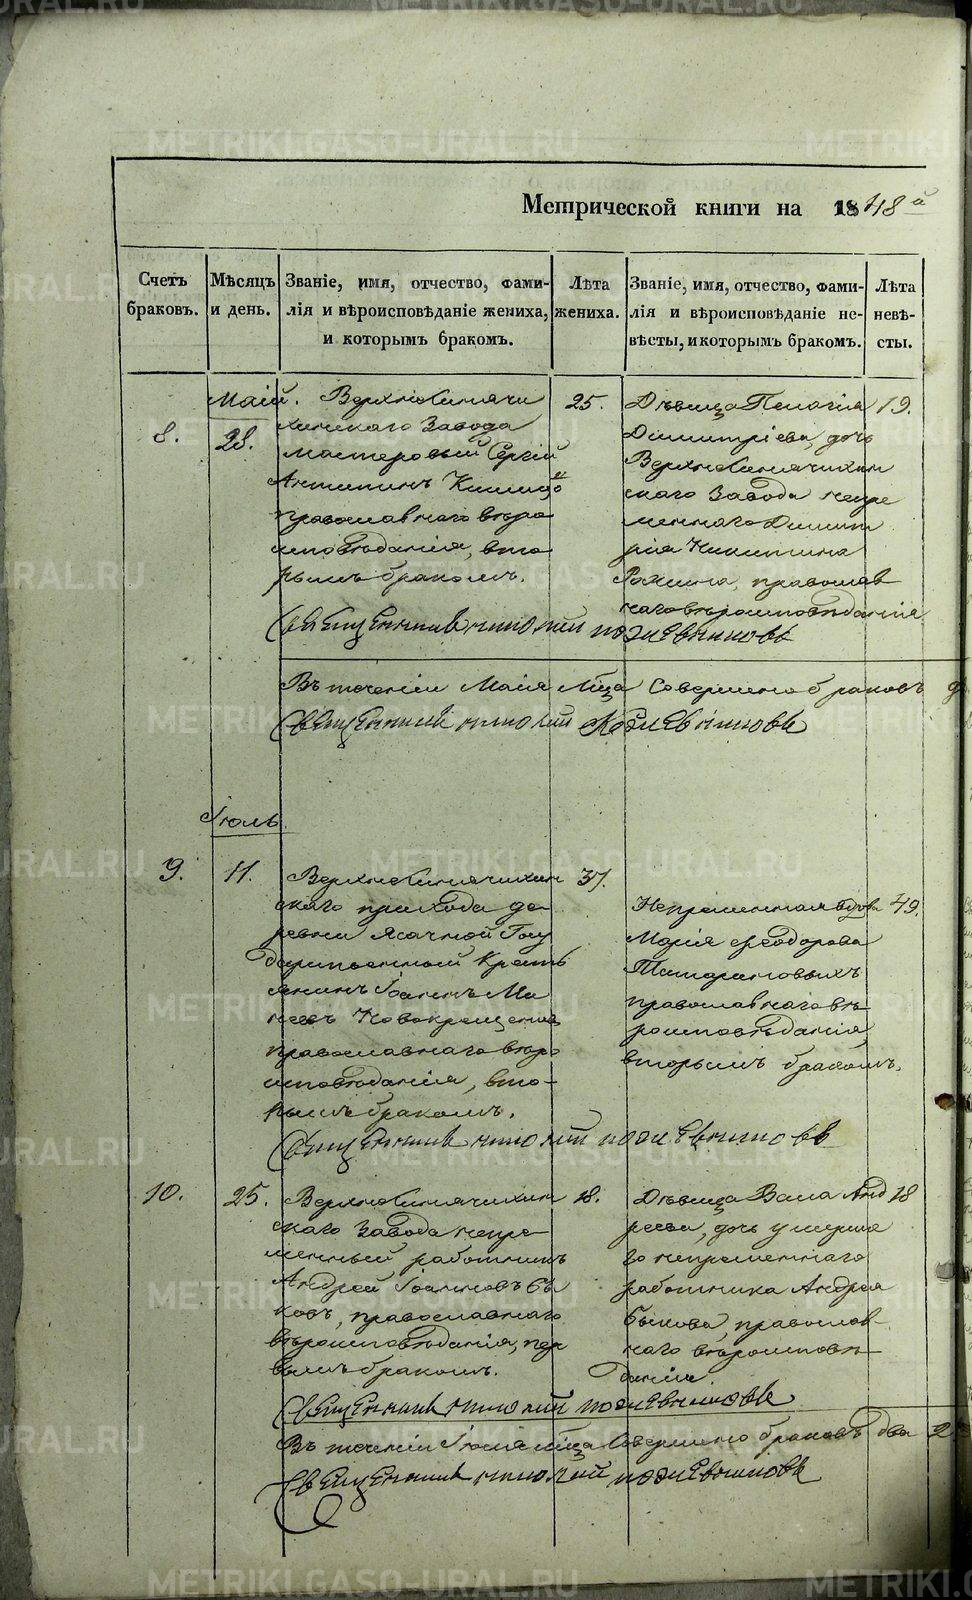 Метрической книги на 1848й
Счетъ браковъ.
Мѣсяцъ и день.
Званіе, имя, отчество, фами-
лія и вѣроисповѣданіе жениха,
и которымъ бракомъ.
Лѣта жениха.
Званіе, имя, отчество, фами-
лія и вѣроисповѣданіе не-
вѣсты, и которымъ бракомъ.
Лѣта невѣ-
сты.
8.
Маій.
28.
Верхнесинячи
хинскаго Завода
мастеровый Сергій
Антипинъ
православнаго вѣро
исповѣданія, вто
рымъ бракомъ.
25.
Дѣвица Пелагія
Димитріева, дочь
Верхнесинячихин
скаго Завода непре
меннаго Димит
рія Никитина
православ
наго вѣроисповѣданія
19.
Священникъ Николій
Въ теченіи Маія мѣца Совершено браковъ
Священникъ Николій
Іюль
9.
11.
Верхнесинячихин
скаго прихода де
ревни Ясачной Госу
дарственный Кресть
янинъ Іоаннъ Ма
Новокрещенныхъ
православнаго вѣро
исповѣданія, вто-
рымъ бракомъ.
37.
Непременная вдова
Марія Ѳеодорова
православнаго вѣ
роисповѣданія,
вторымъ бракомъ.
49.
Священникъ Николій
10.
25.
Верхнесинячихин
скаго Завода непре-
менный работникъ
Андрей Іоанновъ Бы
ковъ, православнаго
вѣроисповѣданія, пер
вымъ бракомъ.
18.
Дѣвица Васа Анд
реева, дочь умерша
го непременнаго
работника Андрея
Быкова, православ-
наго вѣроисповѣ
данія.
18
Священникъ Николій
Въ теченіи Іюля мѣца Совершено браковъ два 2.
Священникъ Николій
METRIKI.GASO-URAL.RU